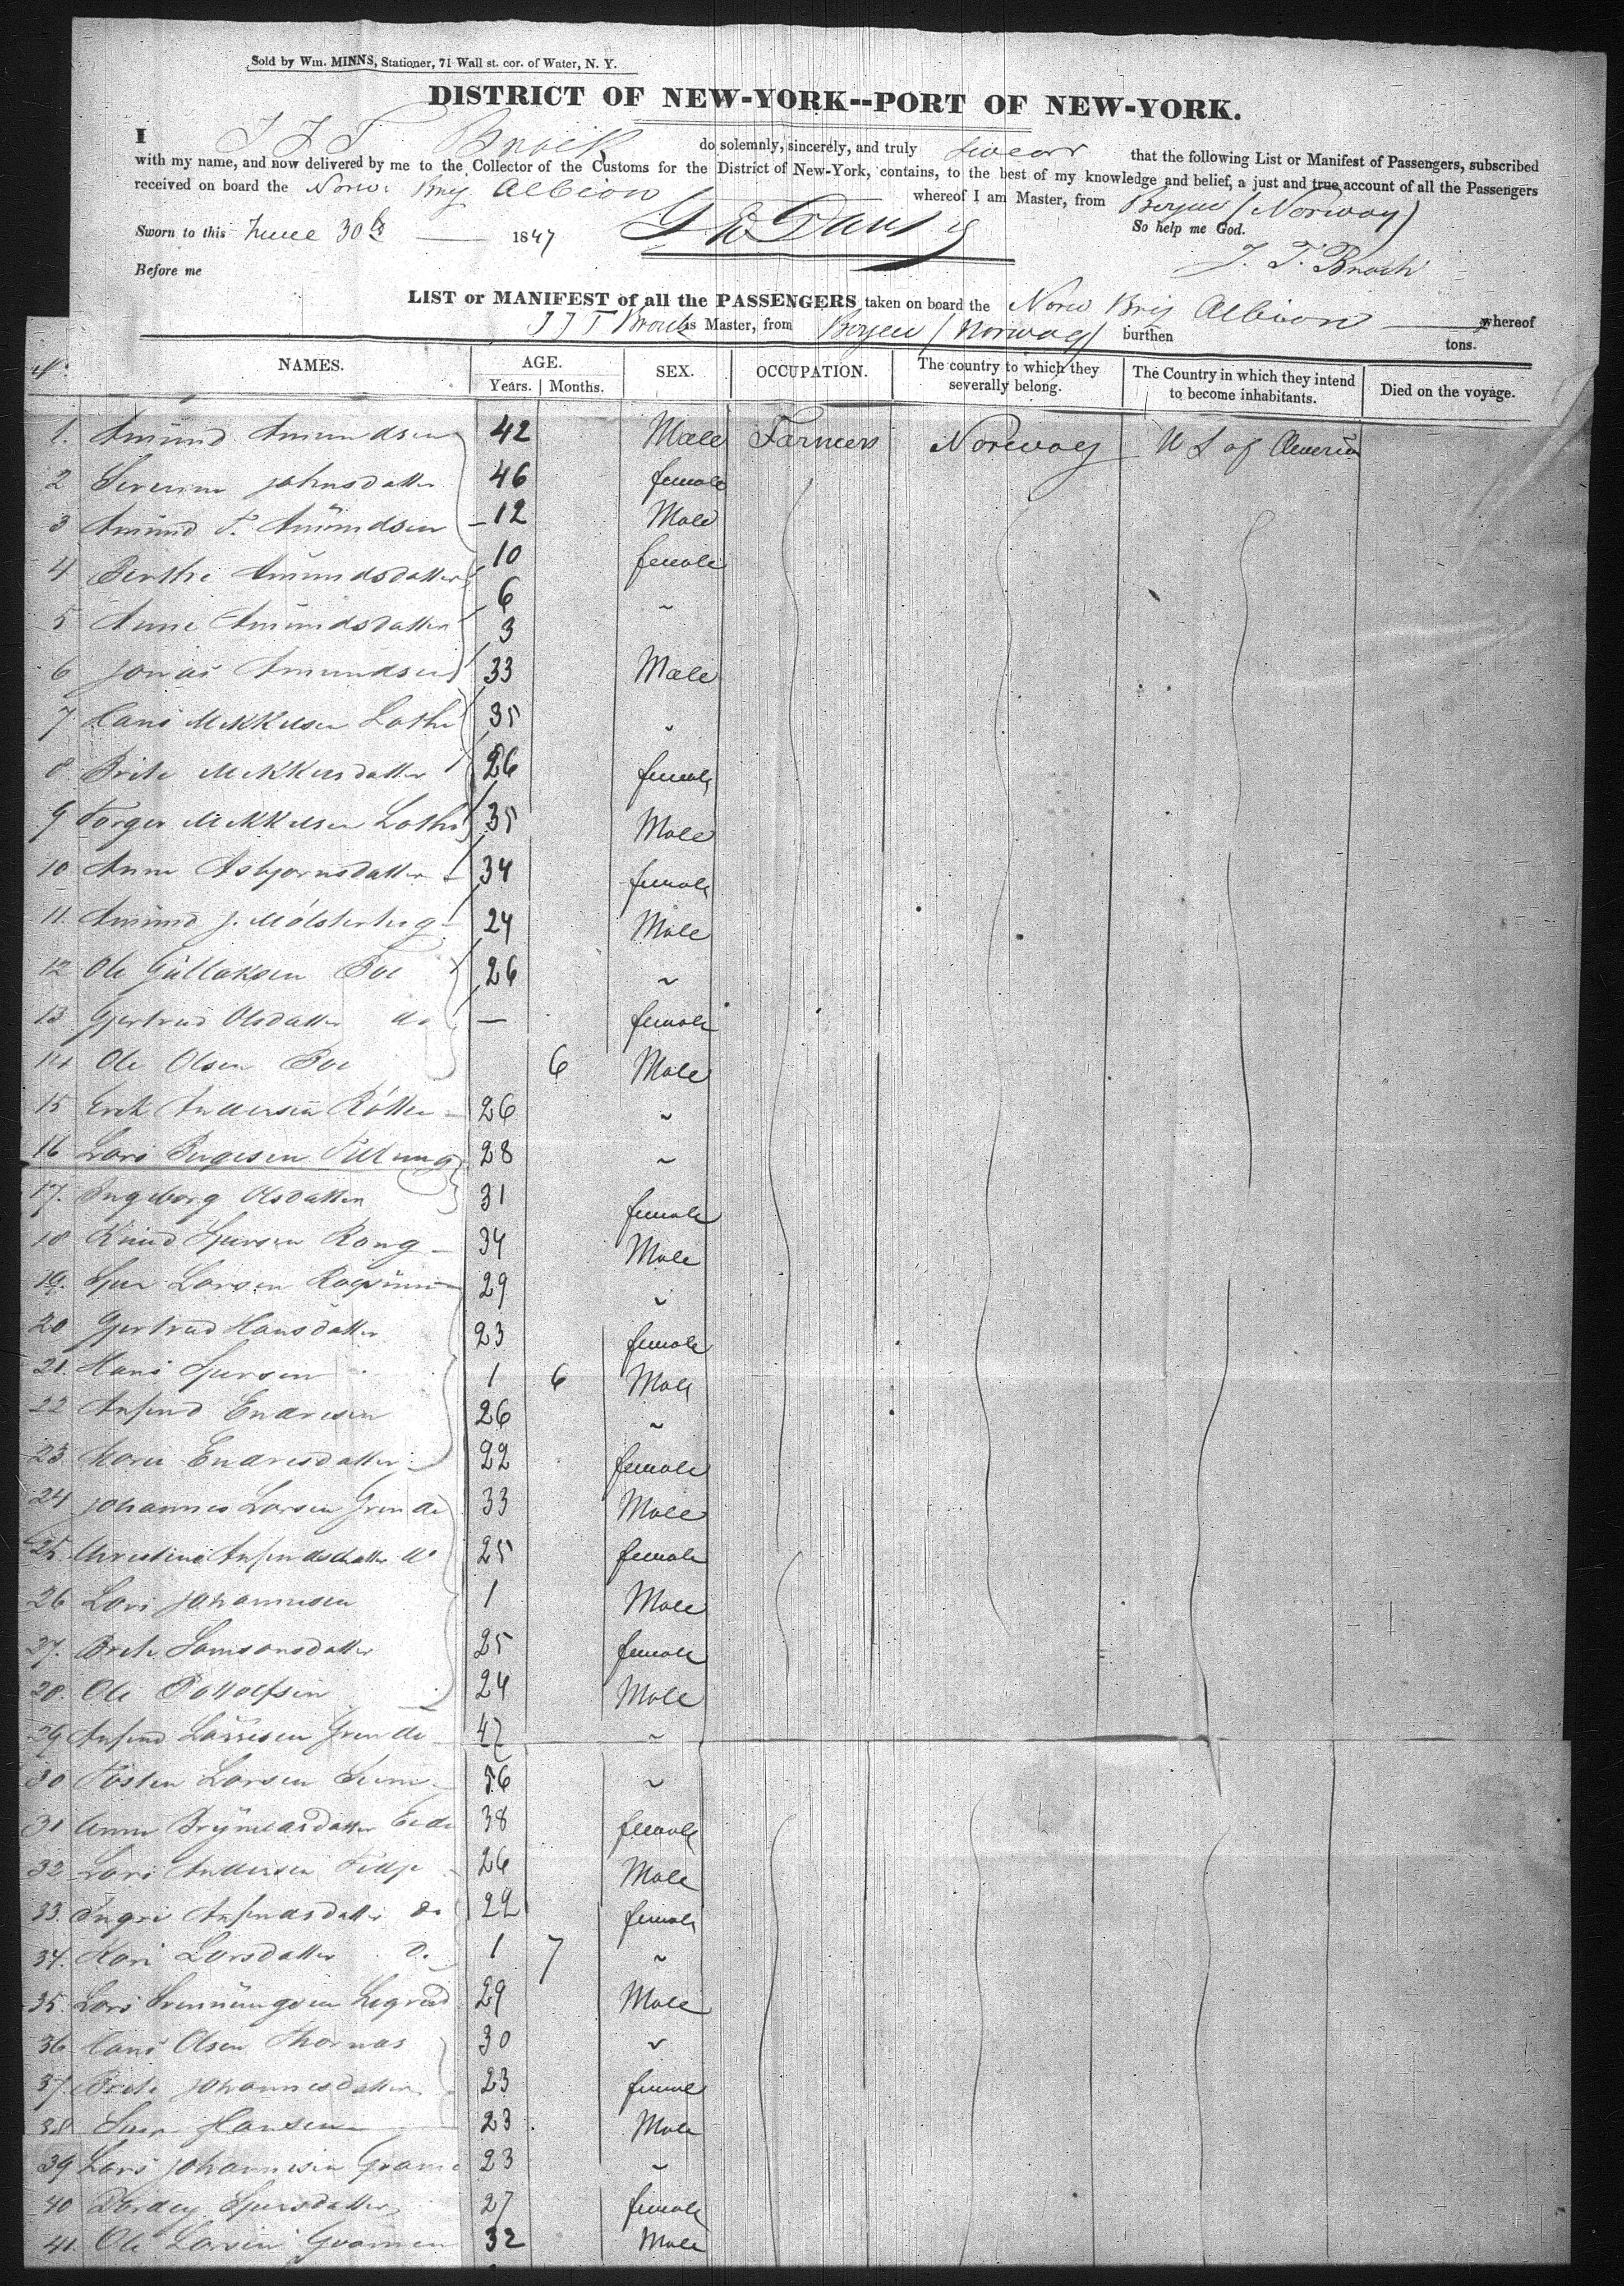 Sold by Wm. MINNS, Stationer, 71 Wall st. cor. of Water, N. Y.
DISTRICT OF NEW-YORK--PORT OF NEW-YORK.
I J J T Broch do solemnly, sincerely, and truly swear that the following List or Manifest of Passengers, subscribed
with my name, and now delivered by me to the Collector of the Customs for the District of New-York, contains, to the best of my knowledge and belief, a just and true account of all the Passengers
received on board the Norw. Brig Albion whereof I am Master, from Bergen (Norway)
Sworn to this June 30th 1847 So help me God.
Before me J. T. Broch
LIST or MANIFEST of all the PASSENGERS taken on board the Norw Brig Albion whereof
J J T Broch is Master, from Bergen (Norway) burthen tons.
No. NAMES. AGE. Years. Months. SEX. OCCUPATION. The country to which they severally belong. The Country in which they intend to become inhabitants. Died on the voyage.
1. Amund Amundsen 42 Male Farmers Norway U S of America
2 Severine Johnsdatter 46 female
3 Amund T. Amundsen 12 Male
4 Berthe Amundsdatter 10 female
5 Anne Amundsdatter 6 ~
6 Jonas Amundsen 3 Male
7 Hans Mikkelsen Lothe 33 ~
8 Brite Mikkelsdatter 35 female
9 Torger Mikkelsen Lothe 26 Male
10 Anne Asbjornsdatter 35 female
11. Amund J. Mölsterteig 34 Male
12 Ole Gullaksen Boe 24 ~
13 Gjertrud Olsdatter do 26 female
14 Ole Olsen Boe — 6 Male
15 Erik Andersen 26 ~
16 Lars 28 ~
17. Ingeborg Olsdatter 31 female
18 Knud Sjursen Rong 34 Male
19. Sjur Larsen 29 ~
20 Gjertrud Hansdatter 23 female
21. Hans Sjursen 1 6 Male
22 Anfind Endresen 26 ~
23. Kari Endresdatter 22 female
24 Johannes Larsen Grinde 33 Male
25. Christine Anfindsdatter do 25 female
26 Lars Johannesen 1 Male
27. Brite Samsonsdatter 25 female
28. Ole Rolfsen 24 Male
29 Anfind Larsen Grinde 47 ~
30 Tosten Larsen 56 ~
31 Anne Brynildsdatter Eide 38 female
32 Lars Andersen 26 Male
33. Ingri Anfindsdatter do 22 female
34. Kari Larsdatter Do 1 7 ~
35. Lars 29 Male
36 Hans Olsen 30 ~
37. Brite Johannesdatter 23 female
38 Sjur Hansen 23 Male
39 Lars Johannesen 23 ~
40 Sjursdatter 27 female
41. Ole Larsen 32 Male